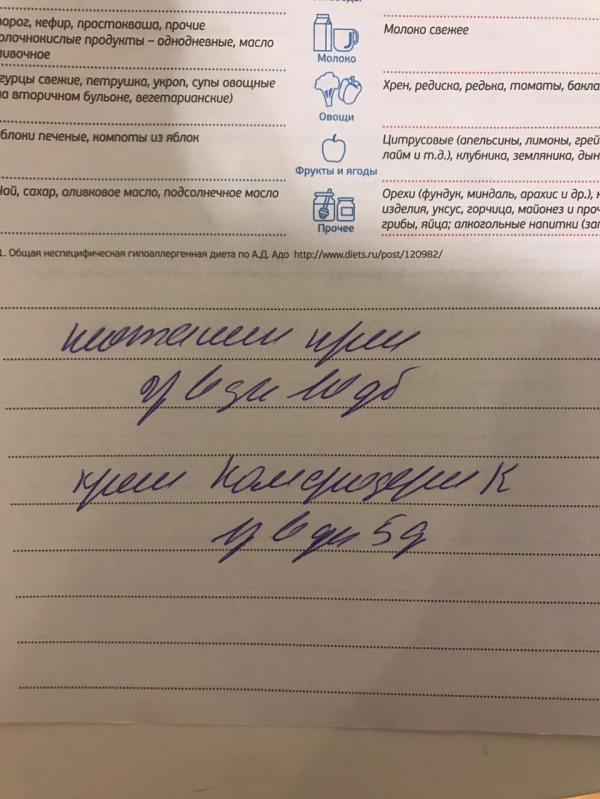 ворог, кефир, простокваша, прочие
олочнокислые продукты – однодневные, масло
ивочное
Молоко
Молоко свежее
гурцы свежие, петрушка, укроп, супы овощные
на вторичном бульоне, вегетарианские)
Овощи
Хрен, редиска, редька, томаты, бакла
блоки печеные, компоты из яблок
Фрукты и ягоды
Цитрусовые (апельсины, лимоны, грей
лайм и т.д.), клубника, земляника, дын
Чай, сахар, оливковое масло, подсолнечное масло
Прочее
Орехи (фундук, миндаль, арахис и др.),
изделия, уксус, горчица, майонез и проч
грибы, яйца; алкогольные напитки (за
1. Общая неспецифическая гипоаллергенная диета по А.Д. Адо http://www.diets.ru/post/120982/
крем
крем К
5д